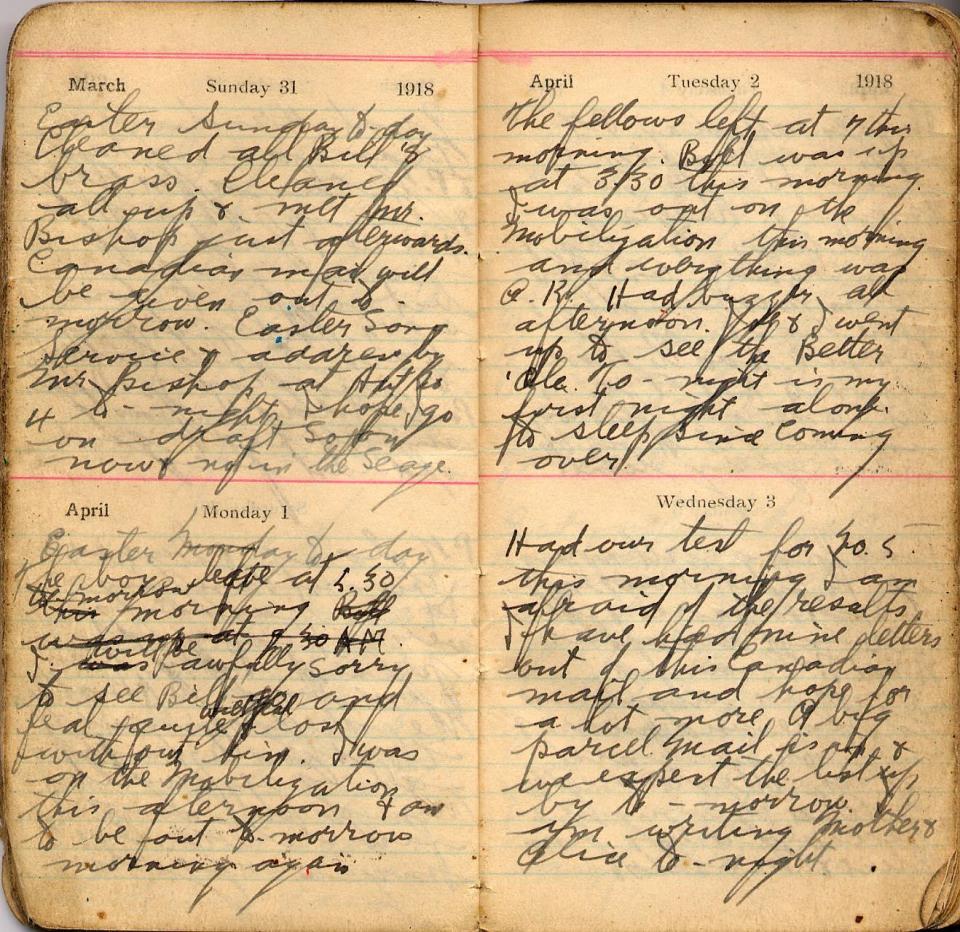 March Sunday 31 1918
Easter Sunday to day
Cleaned all Bill's
brass. Cleaned
all up & met Mr.
Bishop just afterwards.
Canadian mail will
be given out to-
morrow. Easter Song
Service & address by
Mr Bishop at Hut
4 to-night. I hope I go
on draft soon
now & in the
April Monday 1
Easter Monday to-day
The boys leave at 5.30
to-morrow morning Bill
was up at 3 30 AM.
I will be awfully sorry
to see Bill go and
feel quite lost
without him. I was
on the Mobilization
this afternoon & am
to be out to-morrow
morning again
April Tuesday 2 1918
The fellows left at 7 this
morning. Bill was up
at 3/30 this morning.
I was out on the
Mobilization this morning
and everything was
O.K. Had buzzer all
afternoon. & I went
up to see the Better
'Ole. To-night is my
first night alone
to sleep since coming
over.
Wednesday 3
Had our test for
this morning I am
afraid of the results
I have had nine letters
out of this Canadian
mail and hope for
a lot more. A big
parcel mail is in &
we expect the lot up
by to-morrow. I
am writing Mother &
Alice to-night.